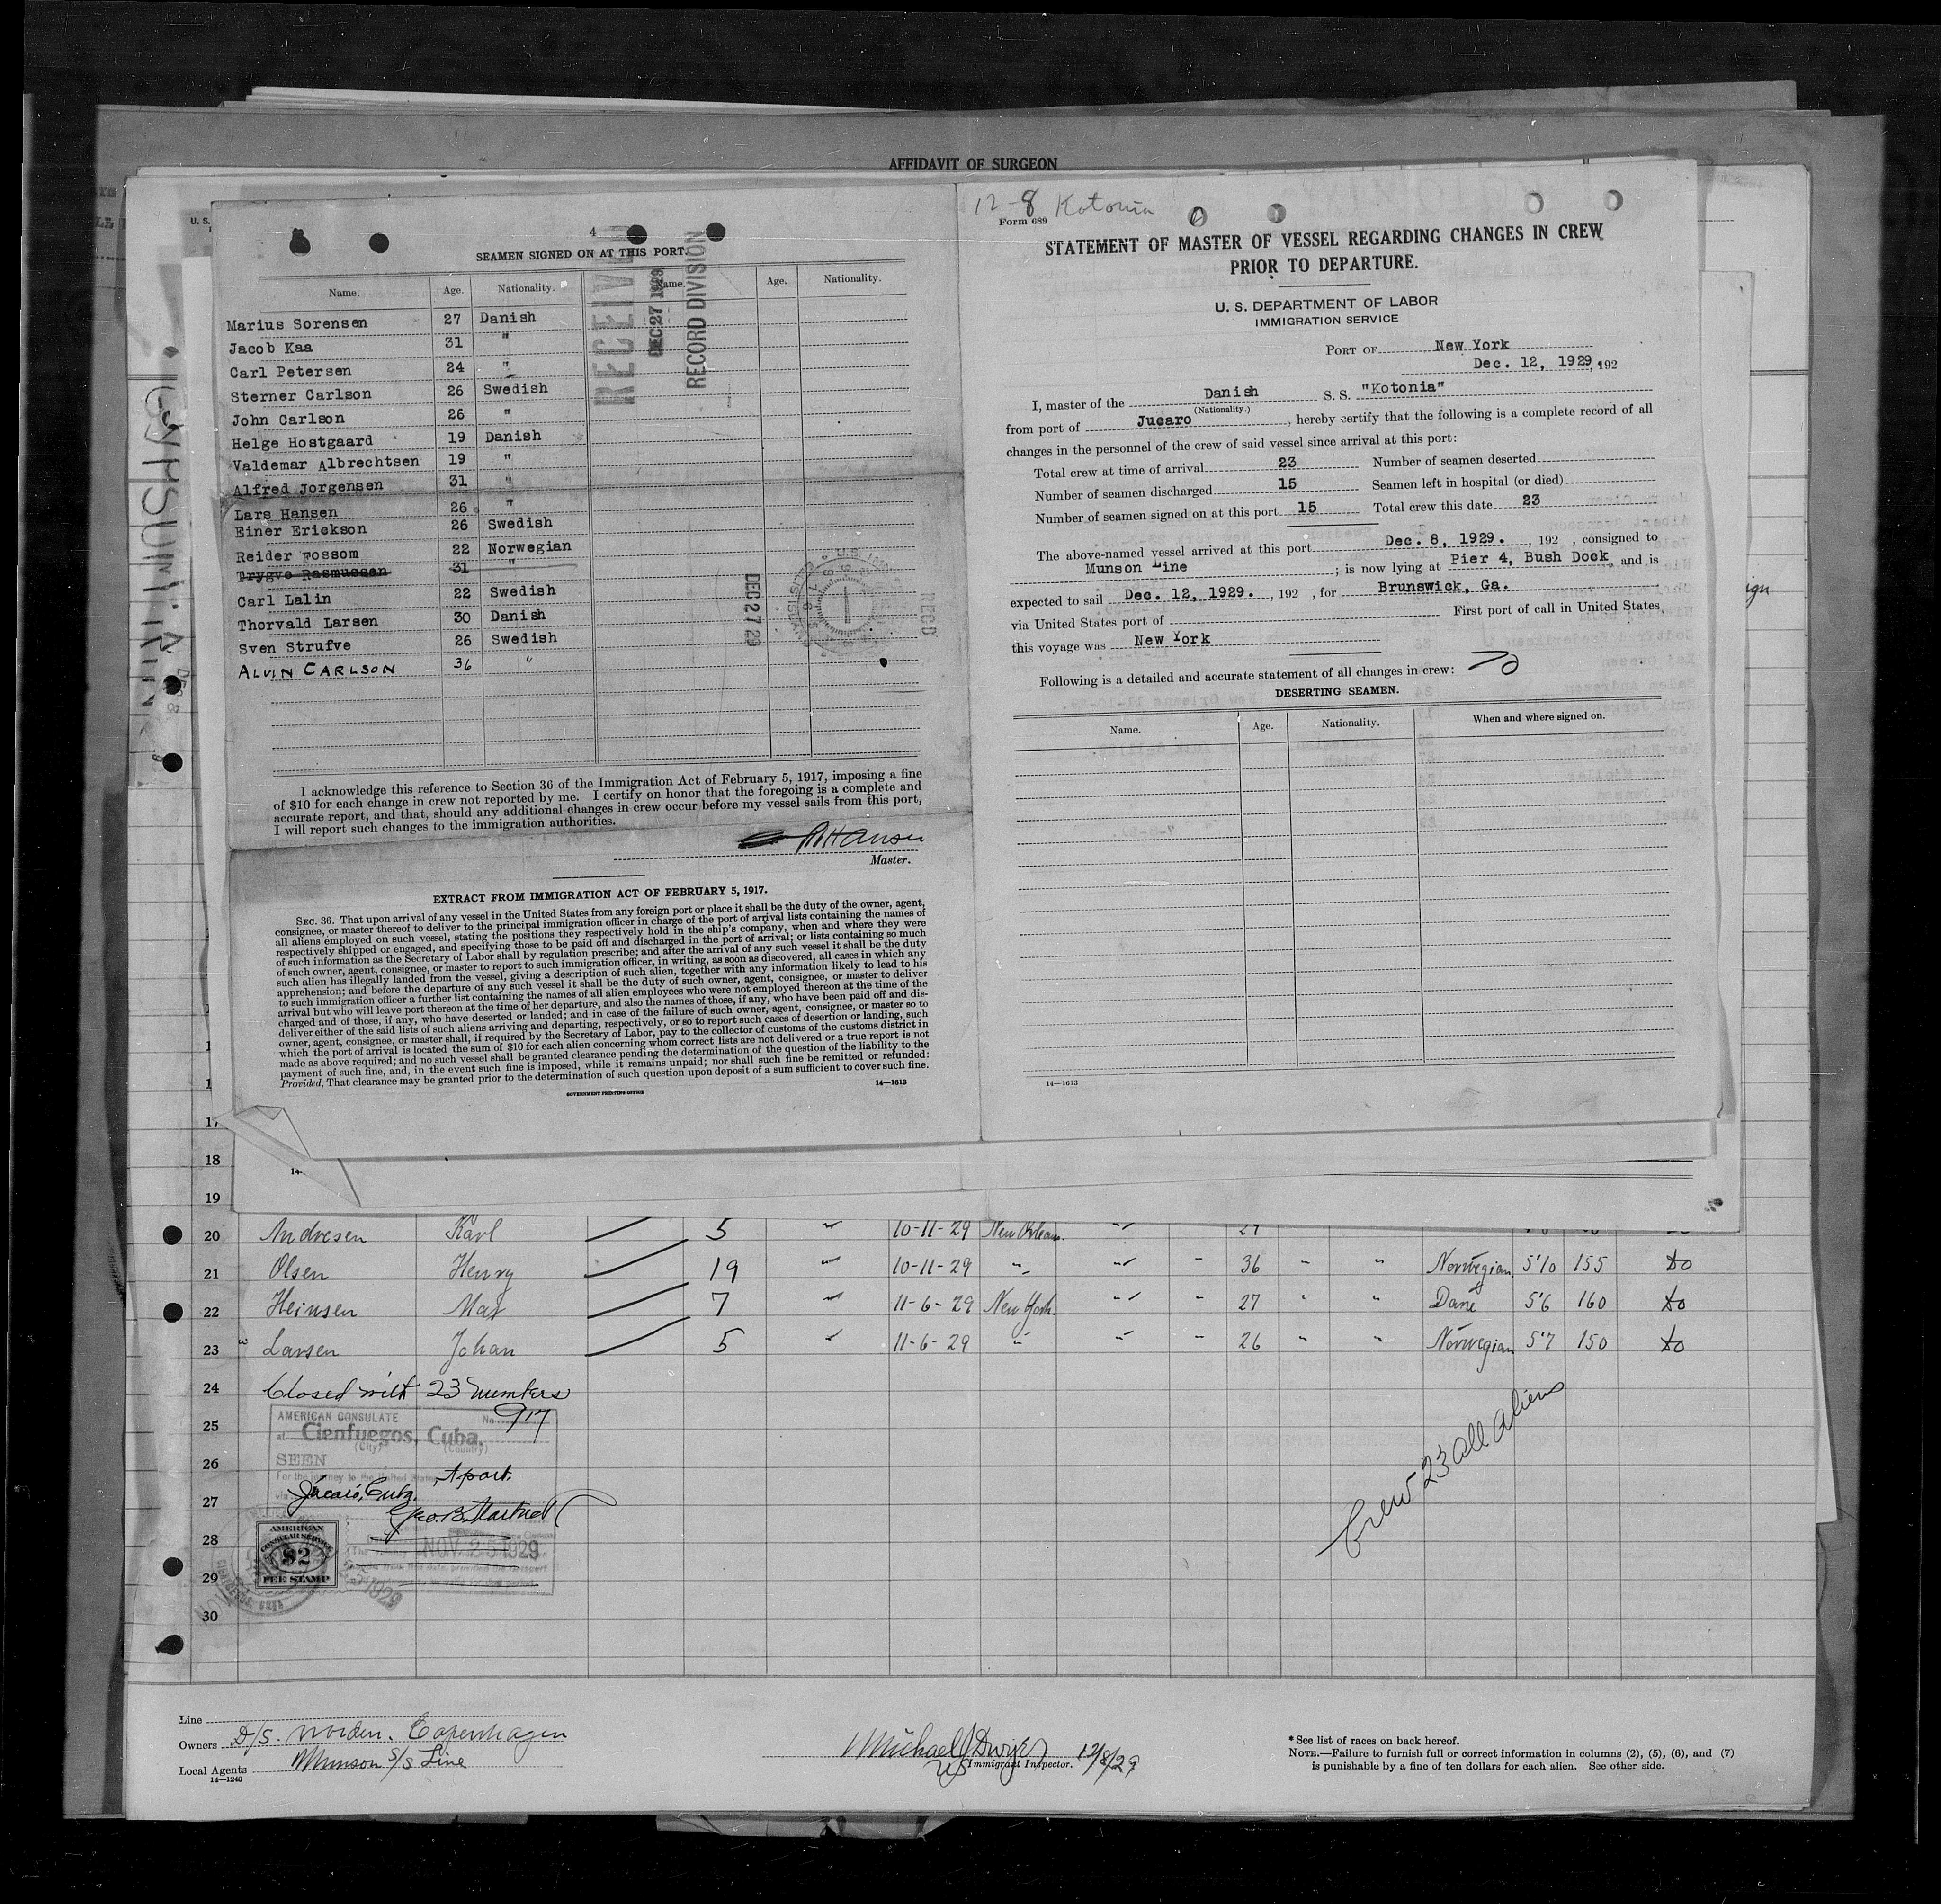 AFFIDAVIT OF SURGEON
U. S.
4
SEAMEN SIGNED ON AT THIS PORT.
Name. Age. Nationality. Name. Age. Nationality.
Marius Sorensen 27 Danish
Jacob Kaa 31 "
Carl Petersen 24 "
Sterner Carlson 26 Swedish
John Carlson 26 "
Helge Hostgaard 19 Danish
Valdemar Albrechtsen 19 "
Alfred Jorgensen 31 "
Lars Hansen 26 "
Einer Erickson 26 Swedish
Reider Fossom 22 Norwegian
Trygve Rasmussen 31 "
Carl Lalin 22 Swedish
Thorvald Larsen 30 Danish
Sven Strufve 26 Swedish
ALVIN CARLSON 36 "
RECEIVED
DEC 27 1929
RECORD DIVISION
DEC 27 29
RECD
I acknowledge this reference to Section 36 of the Immigration Act of February 5, 1917, imposing a fine
of $10 for each change in crew not reported by me. I certify on honor that the foregoing is a complete and
accurate report, and that, should any additional changes in crew occur before my vessel sails from this port,
I will report such changes to the immigration authorities.
Master.
EXTRACT FROM IMMIGRATION ACT OF FEBRUARY 5, 1917.
SEC. 36. That upon arrival of any vessel in the United States from any foreign port or place it shall be the duty of the owner, agent,
consignee, or master thereof to deliver to the principal immigration officer in charge of the port of arrival lists containing the names of
all aliens employed on such vessel, stating the positions they respectively hold in the ship's company, when and where they were
respectively shipped or engaged, and specifying those to be paid off and discharged in the port of arrival; or lists containing so much
of such information as the Secretary of Labor shall by regulation prescribe; and after the arrival of any such vessel it shall be the duty
of such owner, agent, consignee, or master to report to such immigration officer, in writing, as soon as discovered, all cases in which any
such alien has illegally landed from the vessel, giving a description of such alien, together with any information likely to lead to his
apprehension; and before the departure of any such vessel it shall be the duty of such owner, agent, consignee, or master to deliver
to such immigration officer a further list containing the names of all alien employees who were not employed thereon at the time of the
arrival but who will leave port thereon at the time of her departure, and also the names of those, if any, who have been paid off and dis-
charged and of those, if any, who have deserted or landed; and in case of the failure of such owner, agent, consignee, or master so to
deliver either of the said lists of such aliens arriving and departing, respectively, or so to report such cases of desertion or landing, such
owner, agent, consignee, or master shall, if required by the Secretary of Labor, pay to the collector of customs of the customs district in
which the port of arrival is located the sum of $10 for each alien concerning whom correct lists are not delivered or a true report is not
made as above required; and no such vessel shall be granted clearance pending the determination of the question of the liability to the
payment of such fine, and, in the event such fine is imposed, while it remains unpaid; nor shall such fine be remitted or refunded:
Provided, That clearance may be granted prior to the determination of such question upon deposit of a sum sufficient to cover such fine.
14—1613
GOVERNMENT PRINTING OFFICE
12-8 Kotonia
Form 689
STATEMENT OF MASTER OF VESSEL REGARDING CHANGES IN CREW
PRIOR TO DEPARTURE.
U. S. DEPARTMENT OF LABOR
IMMIGRATION SERVICE
PORT OF New York
Dec. 12, 1929, 192
I, master of the Danish S. S. "Kotonia"
(Nationality.)
from port of Jucaro, hereby certify that the following is a complete record of all
changes in the personnel of the crew of said vessel since arrival at this port:
Total crew at time of arrival 23 Number of seamen deserted
Number of seamen discharged 15 Seamen left in hospital (or died)
Number of seamen signed on at this port 15 Total crew this date 23
The above-named vessel arrived at this port Dec. 8, 1929. , 192 , consigned to
Munson Line ; is now lying at Pier 4, Bush Dock, and is
expected to sail Dec. 12, 1929. , 192 , for Brunswick, Ga.
via United States port of First port of call in United States,
this voyage was New York
Following is a detailed and accurate statement of all changes in crew:
DESERTING SEAMEN.
Name. Age. Nationality. When and where signed on.
14—1613
17
18
19
20 Andresen Karl 5 " 10-11-29 New Orleans. " 27
21 Olsen Henry 19 " 10-11-29 " " - 36 " " Norwegian 5'10 155 do
22 Heinsen Max 7 " 11-6-29 New York. " - 27 " " Dane 5'6 160 do
23 Larsen Johan 5 " 11-6-29 " " - 26 " " Norwegian 5'7 150 do
24 Closed with 23 numbers
25
26
27
28
29
30
AMERICAN CONSULATE No. 917
at Cienfuegos, Cuba,
(City) (Country)
SEEN
For the journey to the United States
NOV 25 1929
AMERICAN
CONSULAR SERVICE
$2
FEE STAMP
Crew 23 all aliens
Line
Owners D/S. Norden. Copenhagen
Local Agents Munson S/S Line
14—1240
Michael J Dwyer 12/8/29
US Immigrant Inspector.
*See list of races on back hereof.
NOTE.—Failure to furnish full or correct information in columns (2), (5), (6), and (7)
is punishable by a fine of ten dollars for each alien. See other side.